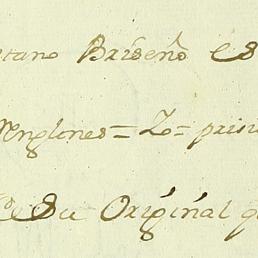 tano Briseño es
Renglones = Z = prin
es su Original q